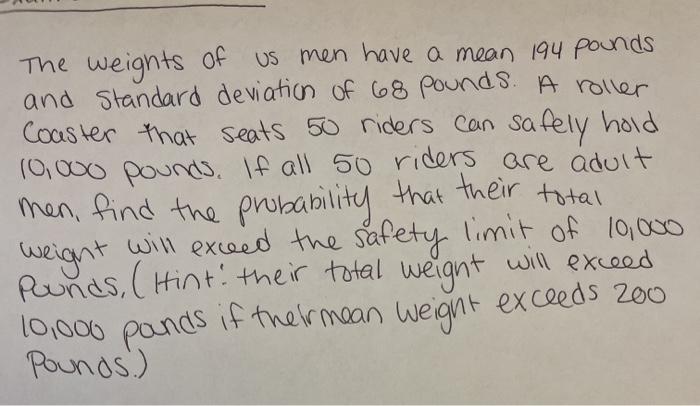 The weights of us men have a mean 194 pounds
and standard deviation of 68 pounds. A roller
Coaster that seats 50 riders can safely hold
10,000 pounds. If all 50 riders are adult
men, find the probability that their total
weight will exceed the safety limit of 10,000
Pounds. (Hint: their total weight will exceed
10,000 pands if their mean weight exceeds 200
Pounds.)